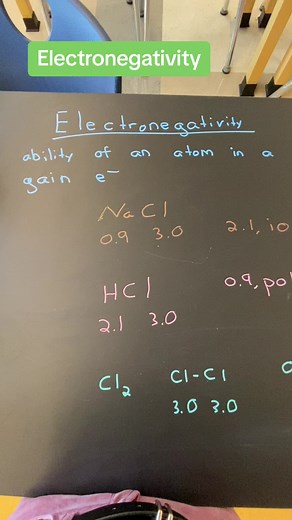 Electronegativity
Electronegativity
ability of an atom in a
gain e⁻
NaCl
0.9 3.0 2.1, io
HCl 0.9, pol
2.1 3.0
Cl₂ Cl-Cl 0
3.0 3.0